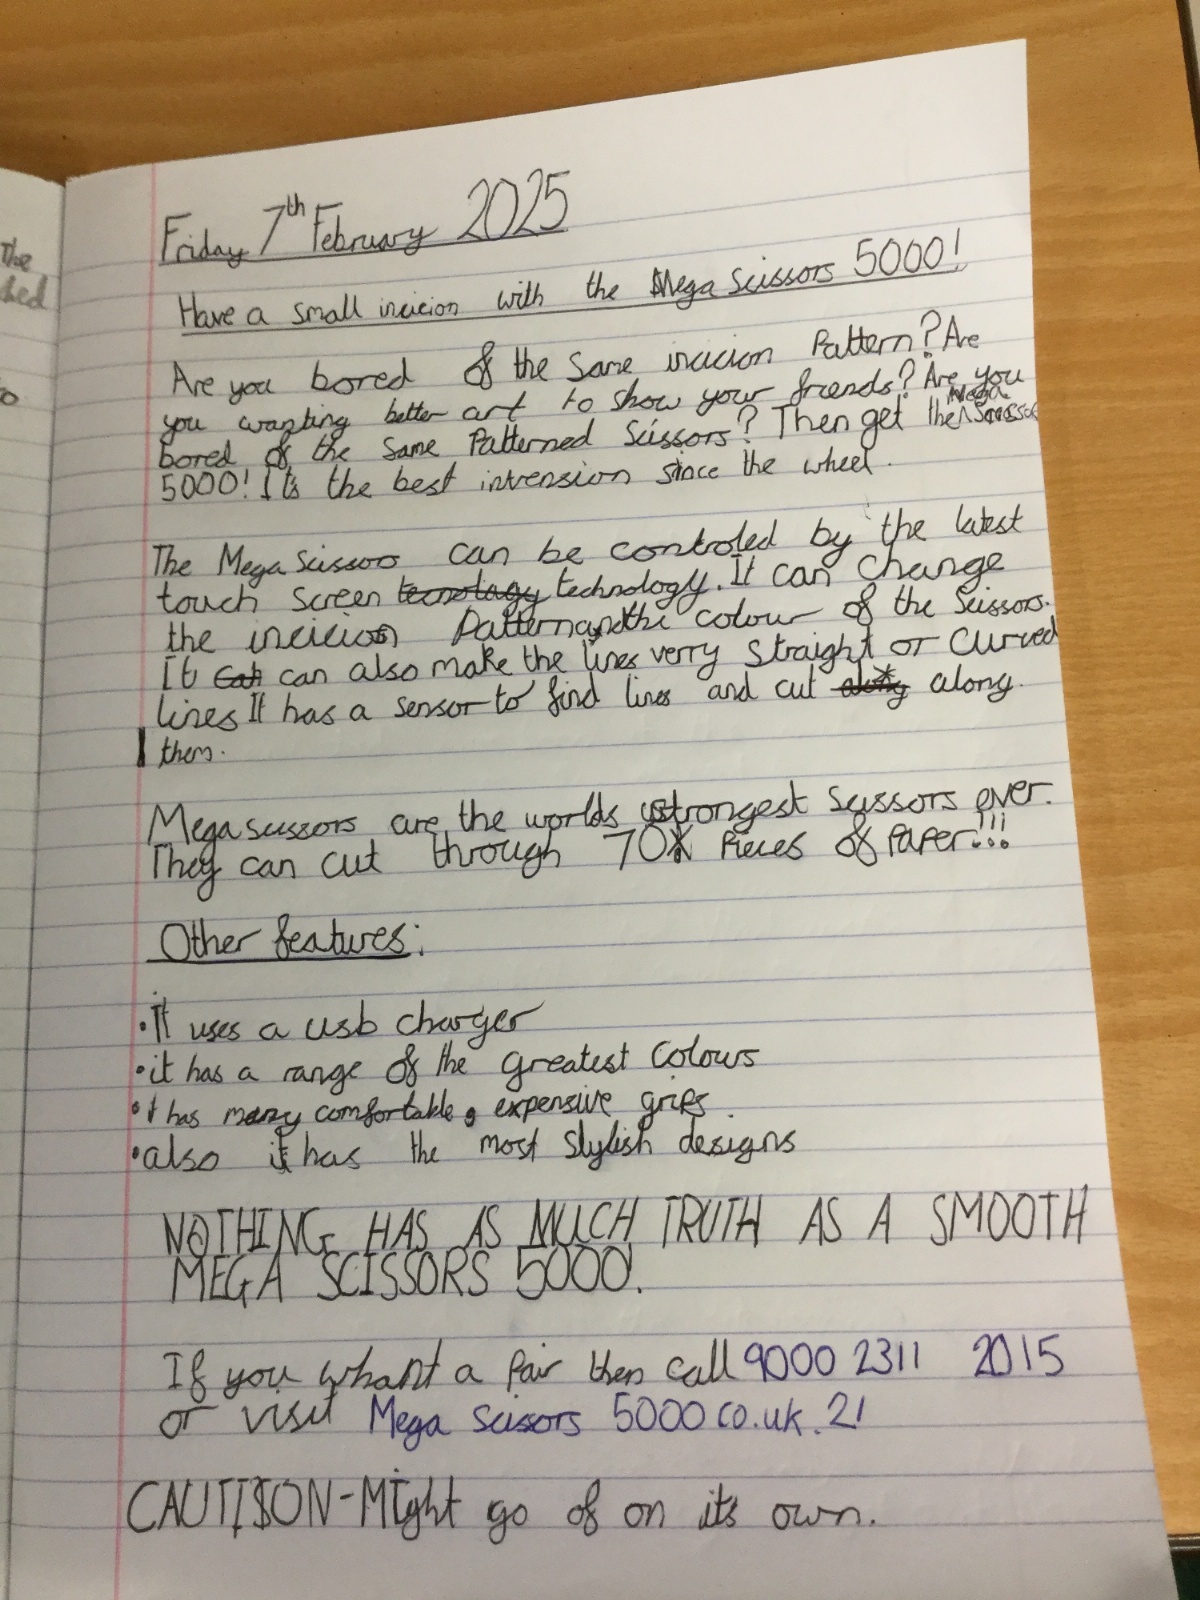 The
ked
Friday 7th February 2025
Have a small incicion with the Mega Scissors 5000!
Are you bored of the same incicion Pattern? Are
you wanting better art to show your friends? Are you
bored of the same Patterned Scissors? Then get the Mega Scissors
5000! Its the best intvension since the wheel.
The Mega Scissors can be controled by the latest
touch screen tecnology technology. It can change
the incicion Pattern and the colour of the Scissors.
It can can also make the lines verry straight or curved
lines It has a sensor to find lines and cut along along
them.
Mega scissors are the worlds strongest scissors ever.
They can cut through 70 Pieces of Paper!!!
Other features:
•It uses a usb charger
•it has a range of the greatest colours
•it has many comfortable, expensive grips.
•also it has the most stylish designs
NOTHING HAS AS MUCH TRUTH AS A SMOOTH
MEGA SCISSORS 5000!
If you whant a Pair then call 9000 2311 2015
or visit Mega Scissors 5000co.uk.21
CAUTISON-Might go of on its own.